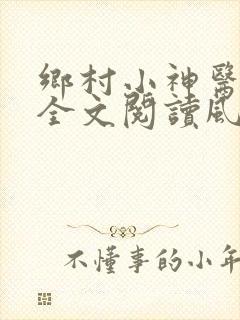 鄉村小神醫
全文閱讀風
不懂事的小年